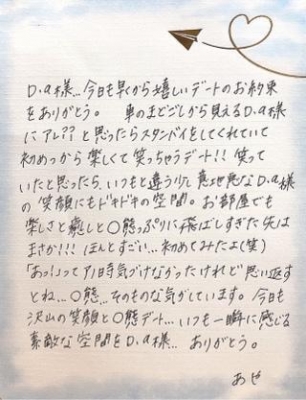 D.a様…今日も早くから嬉しいデートのお約束
をありがとう。 車のまどごしから見えるD.a様
にアレ?? と思ったらスタンバイをしてくれていて
初めっから楽しくて笑っちゃうデート!! 笑って
いたと思ったら、いつもと違う少し意地悪なD.a様
の笑顔にもドキドキの空間。お部屋でも
楽しさと癒しと〇態っぷりに飛ばしすぎた先は
まさか!!! ほんとすごい…初めてみたよ(笑)
「あっ!」って 時気づけなかったけれど思い返す
とね…〇態…そのものな気がしています。今日も
沢山の笑顔と〇態デート…いつも一瞬に感じる
素敵な空間をD.a様… ありがとう。
あや